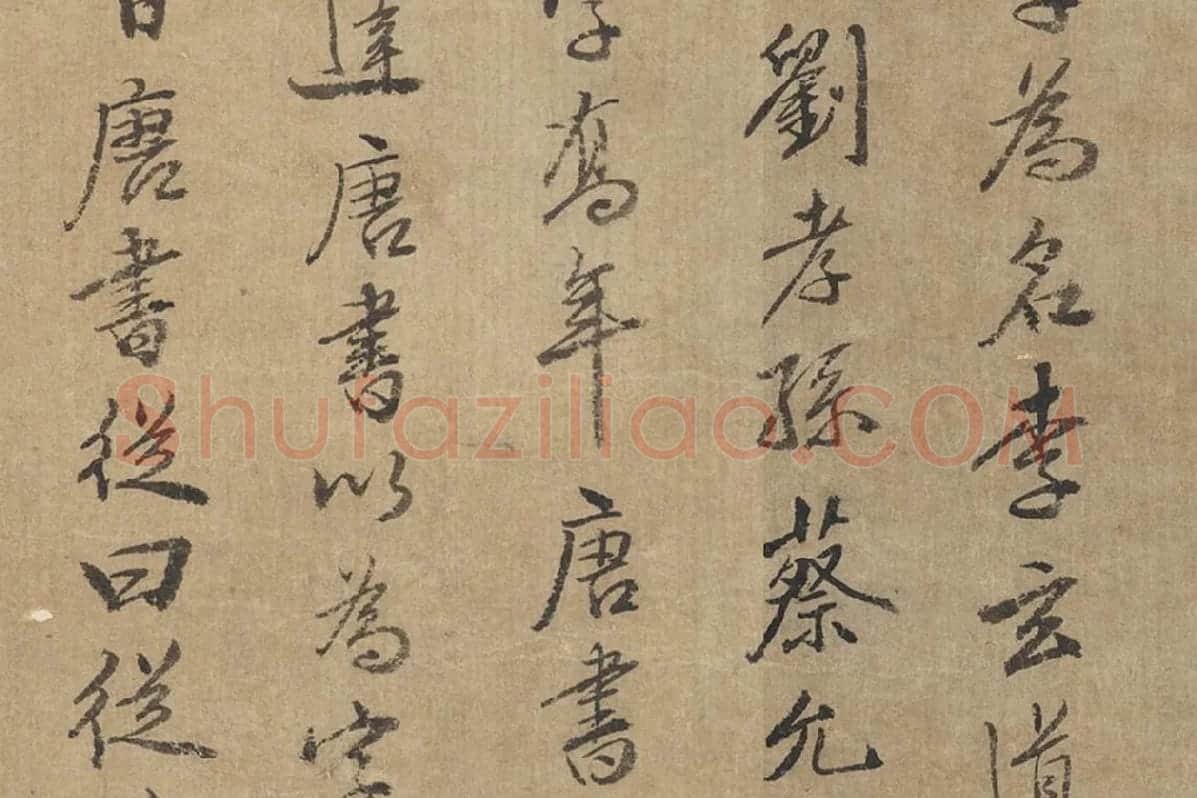 字為名李玄道
劉孝孫蔡允
字年唐書
達唐書以為字
唐書從曰從
Shufaziliao.COM